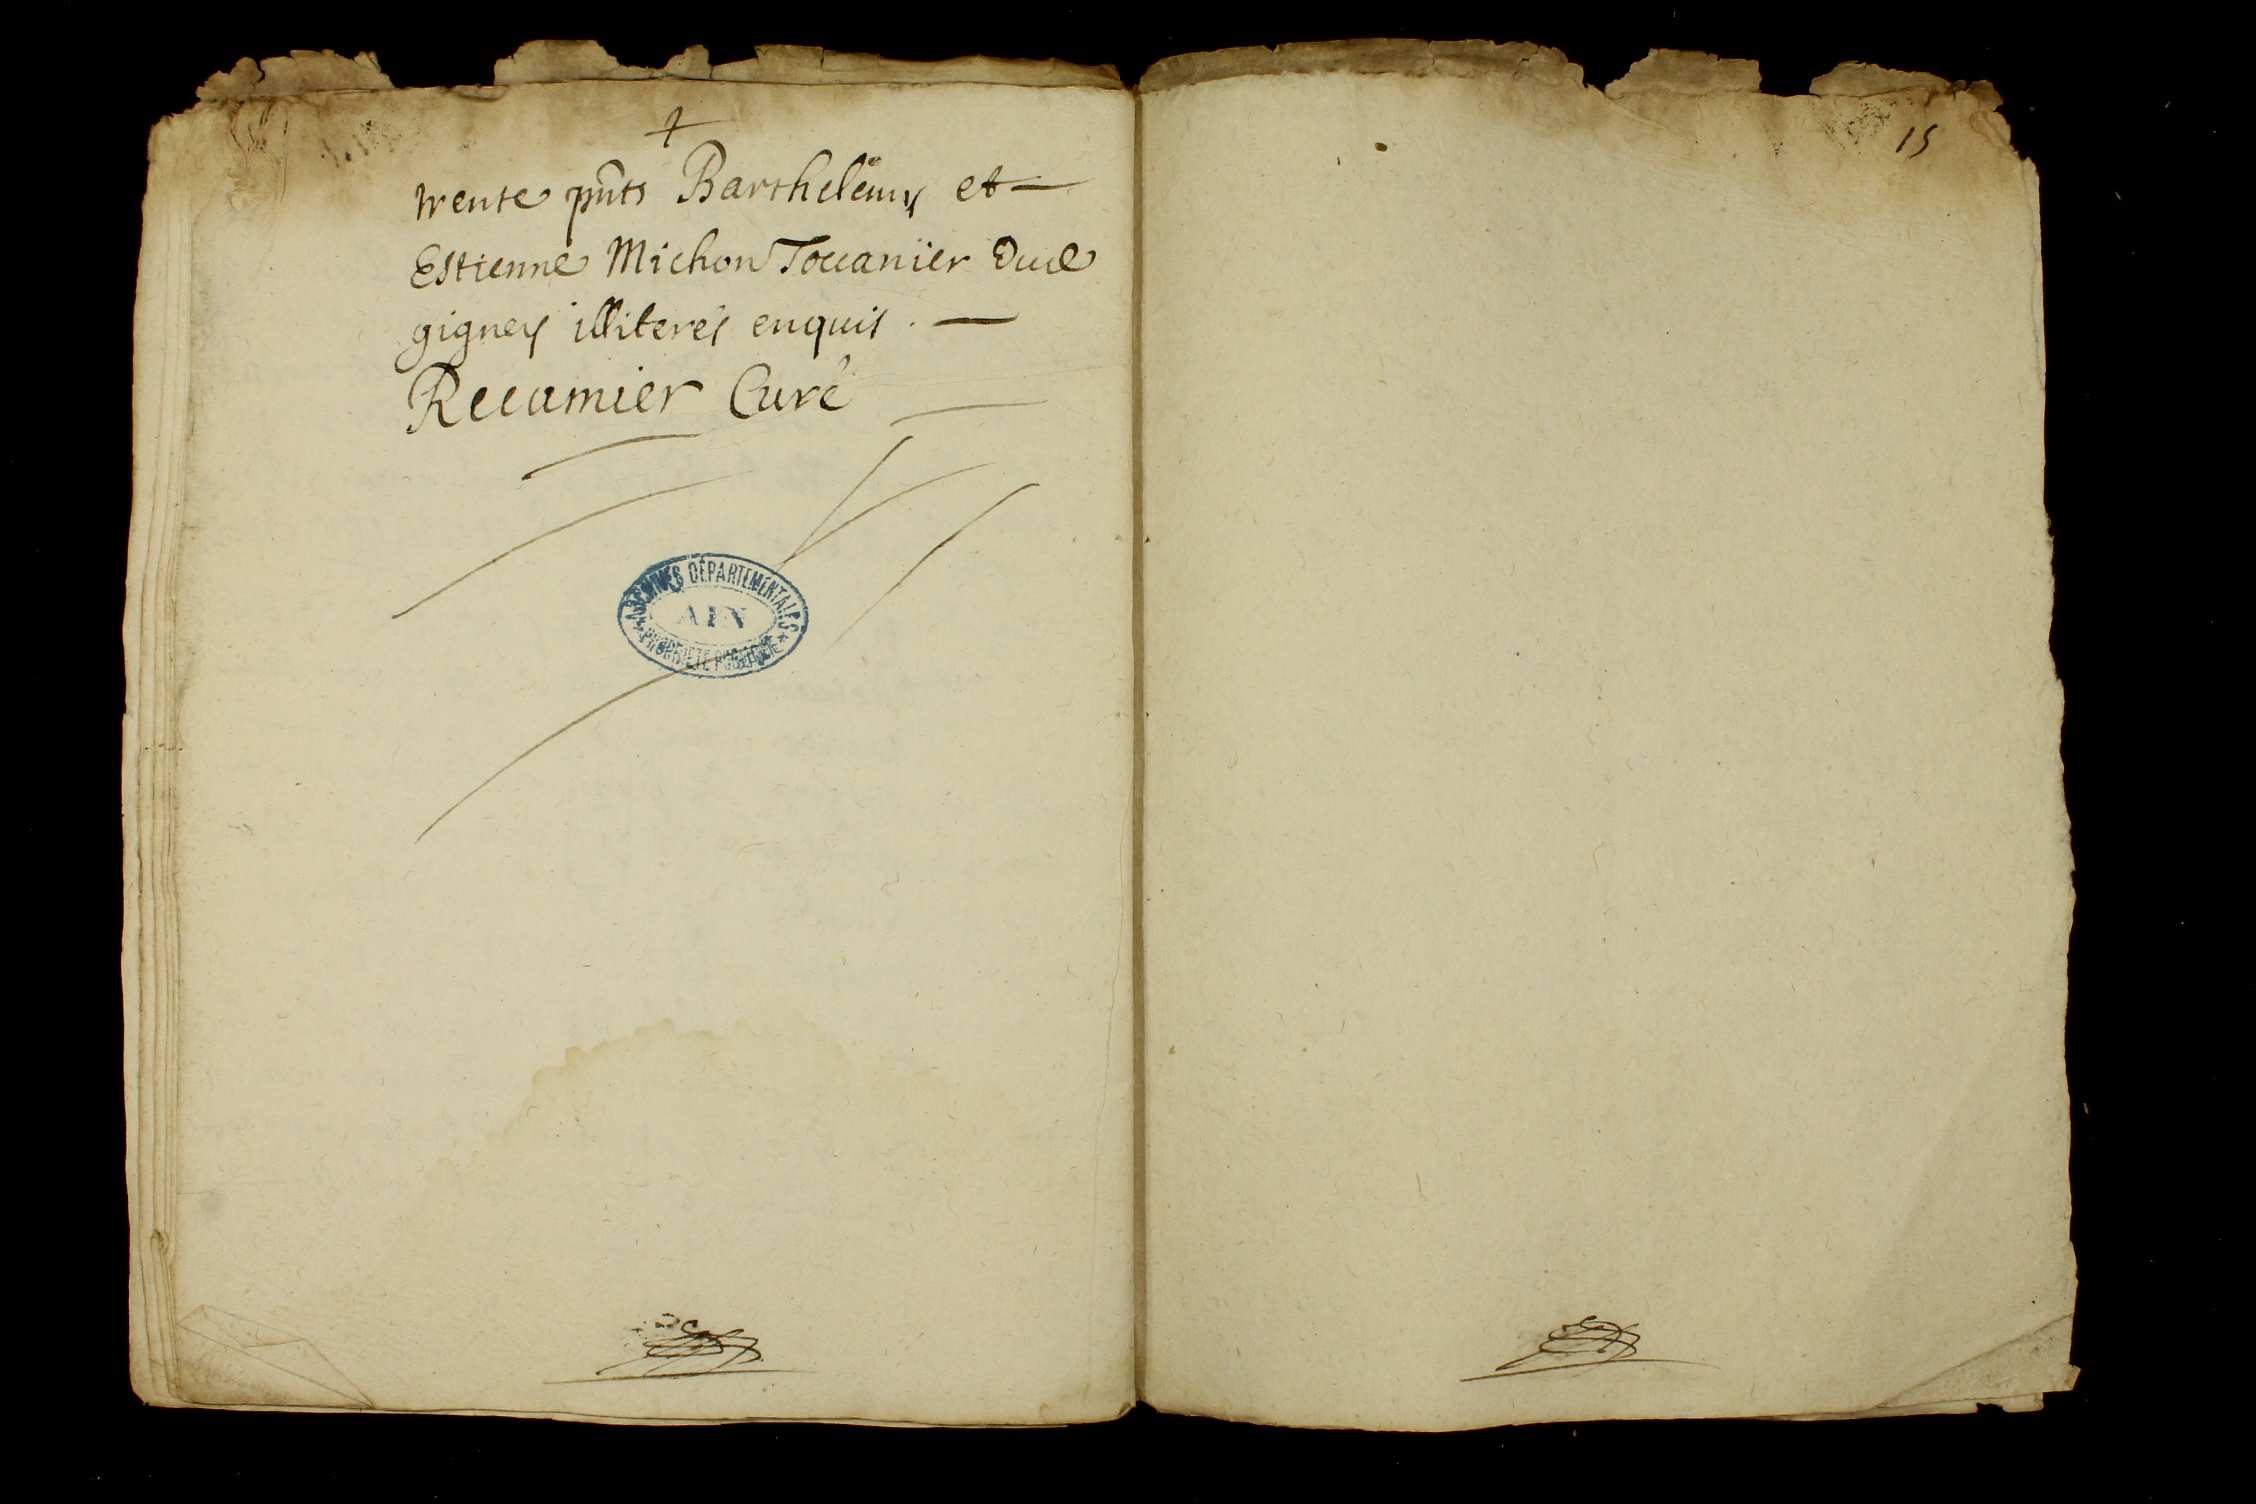 +
trente pnts Barthelemy et
Estienne Michon Toccanier dud
gigney illiterés enquis .
Recamier Curé
ARCHIVES DÉPARTEMENTALES
AIN
PROPRIÉTÉ PUBLIQUE
15